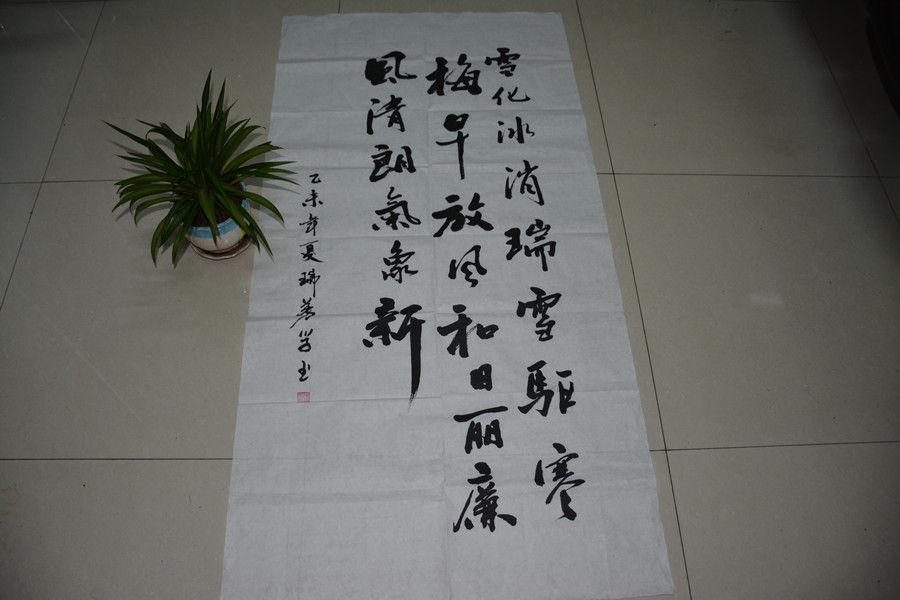 雪化冰消瑞雪驱寒
梅早放风和日丽廉
風清朗氣象新
乙未年夏瑞善学书